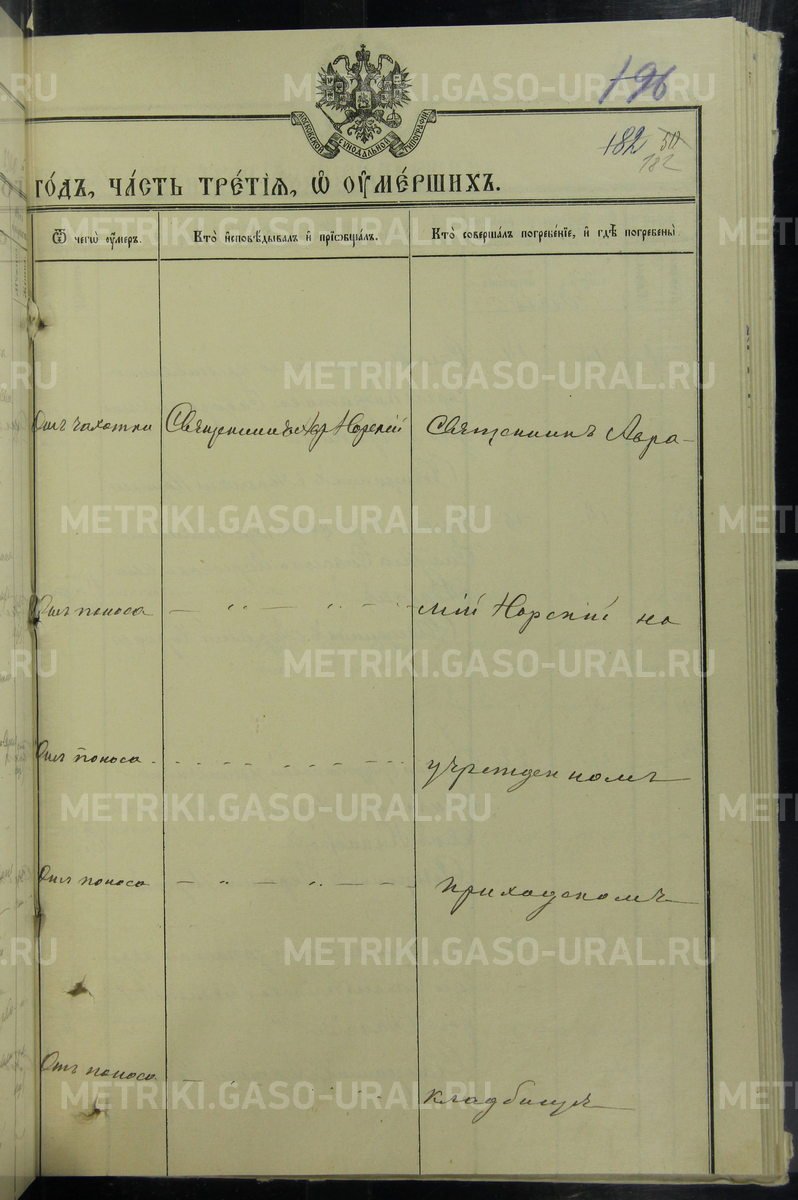 196
МОСКОВСКОЙ СѴНОДАЛЬНОЙ ТИПОГРАФІИ
182 50
182
го́дъ, ча́сть тре́тїѧ, ѡ҆ ᲂу҆ме́ршихъ.
Ѿ чегѡ̀ ᲂу҆́меръ.
Кто̀ и҆сповѣ́дывалъ и҆ прїѡбща́лъ.
Кто̀ соверша́лъ погребе́нїе, и҆ гдѣ̀ погребены̀
Отъ чахотки
Священникъ Авр Норскій
Священникъ Авра-
Отъ поноса
— „ — „ — „
мій Норскій на
Отъ поноса
учрежденномъ
Отъ поноса
— „ — „ — —
приходскомъ
Отъ поноса
кладбищѣ
METRIKI.GASO-URAL.RU